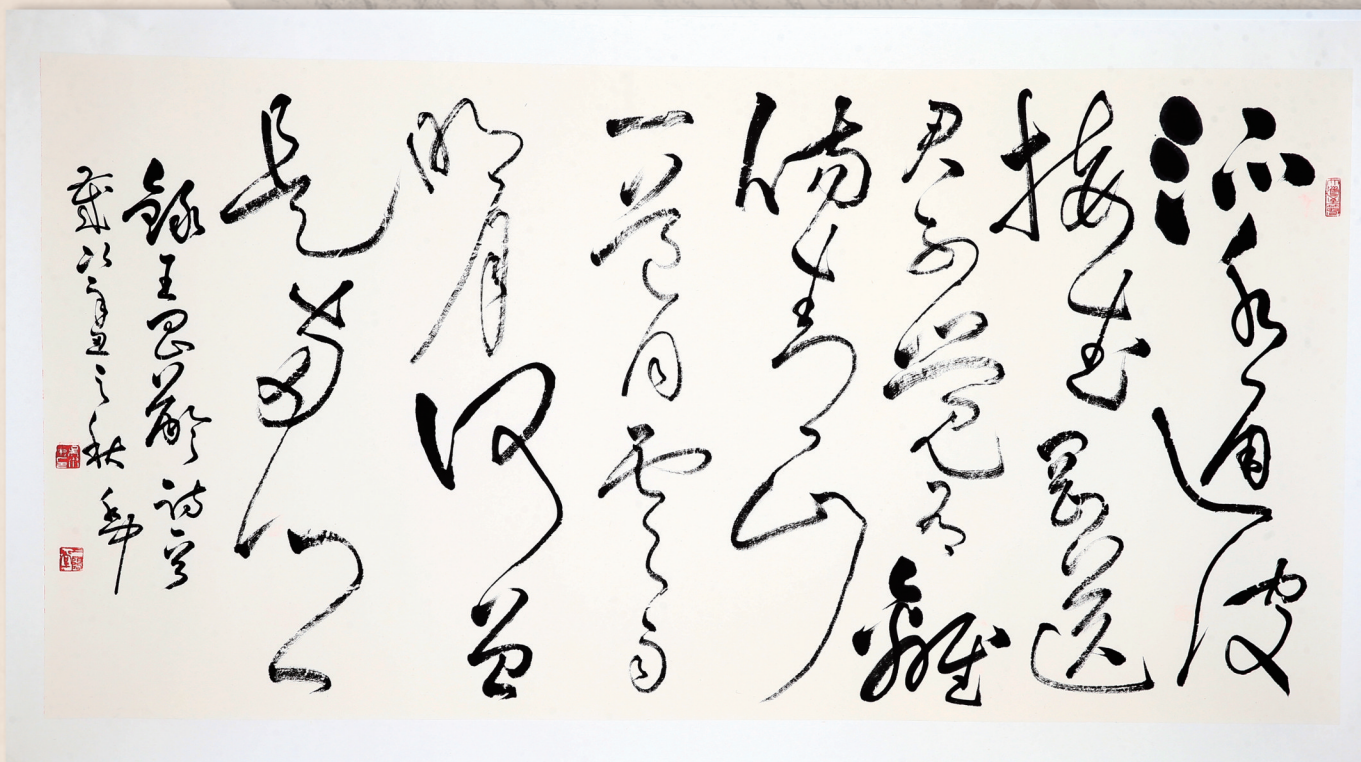 沅水通波
接武岡送
君不覺有離
傷青山
一道同雲雨
明月何曾
是兩鄉
錄王昌齡詩
歲次辛丑之秋